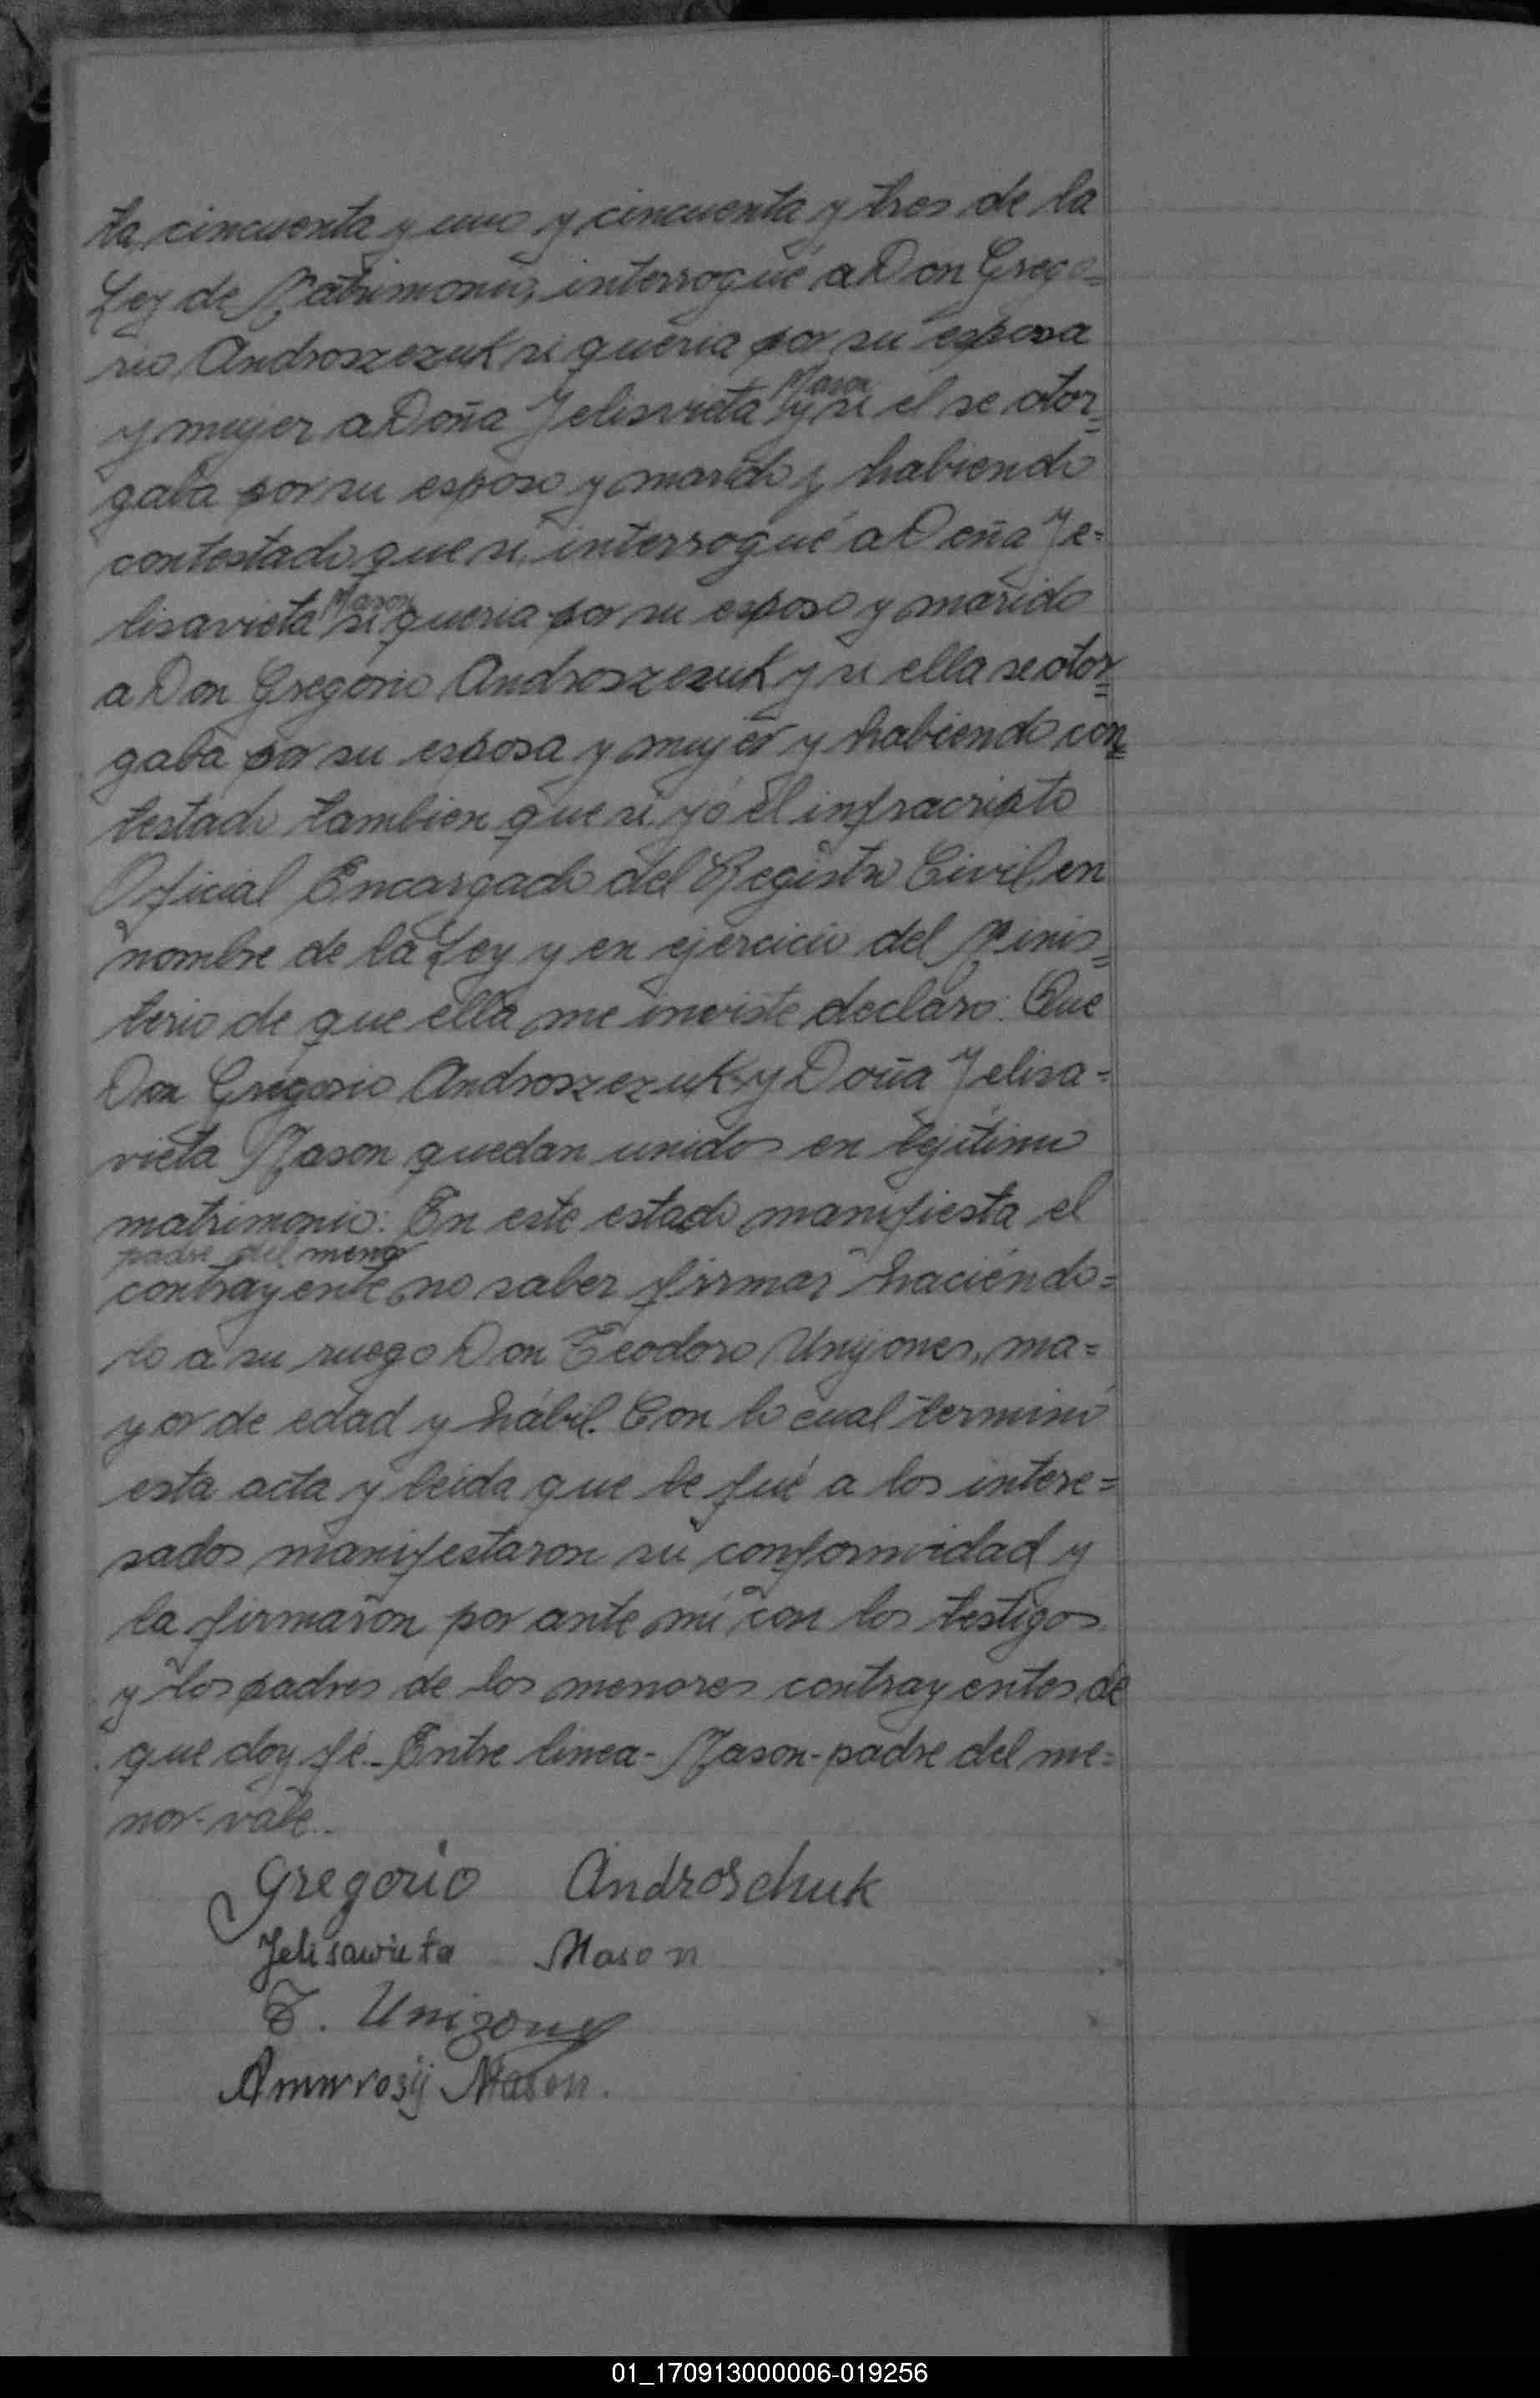 ta, cincuenta y uno y cincuenta y tres de la
Ley de Matrimonio, interrogué a Don Grego=
rio Androszezuk si queria por su esposa
Mason
y mujer a Doña Jelisvieta y si el se otor=
gaba por su esposo y marido y habiendo
contestado que si, interrogué a Doña Je=
Mason
lisavieta si queria por su esposo y marido
a Don Gregorio Androszezuk y si ella se otor=
gaba por su esposa y mujer y habiendo con=
testado tambien que si, yó el infracripto
Oficial Encargado del Registro Civil, en
nombre de la Ley y en ejercicio del Minis=
terio de que ella me inviste, declaro: Que
Don Gregorio Androszezuk y Doña Jelisa=
vieta Mason quedan unidos en lejítimo
matrimonio: En este estado manifiesta el
padre del menor
contrayente no saber firmar haciéndo=
lo a su ruego Don Teodoro Unijones, ma=
yor de edad y hábil. Con lo cual terminó
esta acta y leida que le fué a los intere=
sados manifestaron su conformidad y
la firmaron por ante mí con los testigos
y los padres de los menores contrayentes de
que doy fé.- Entre linea- Mason-padre del me=
nor-vale.-
Gregorio Androschuk
Jelisawieta Mason
T. Unizony
Amwrosij Mason.
01_170913000006-019256